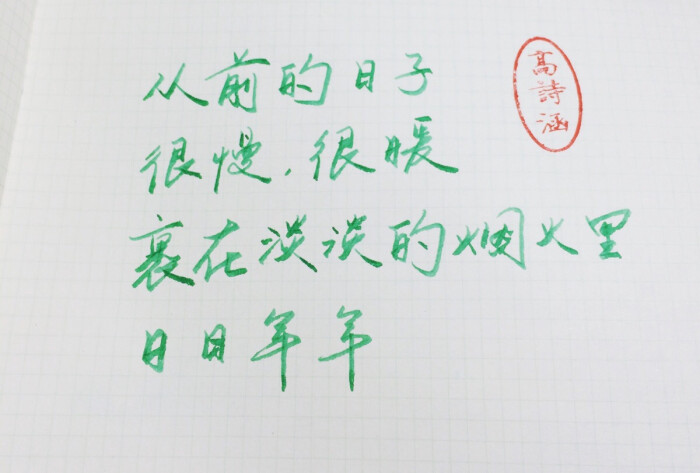 从前的日子
很慢,很暖
裹在淡淡的烟火里
日日年年
高詩涵